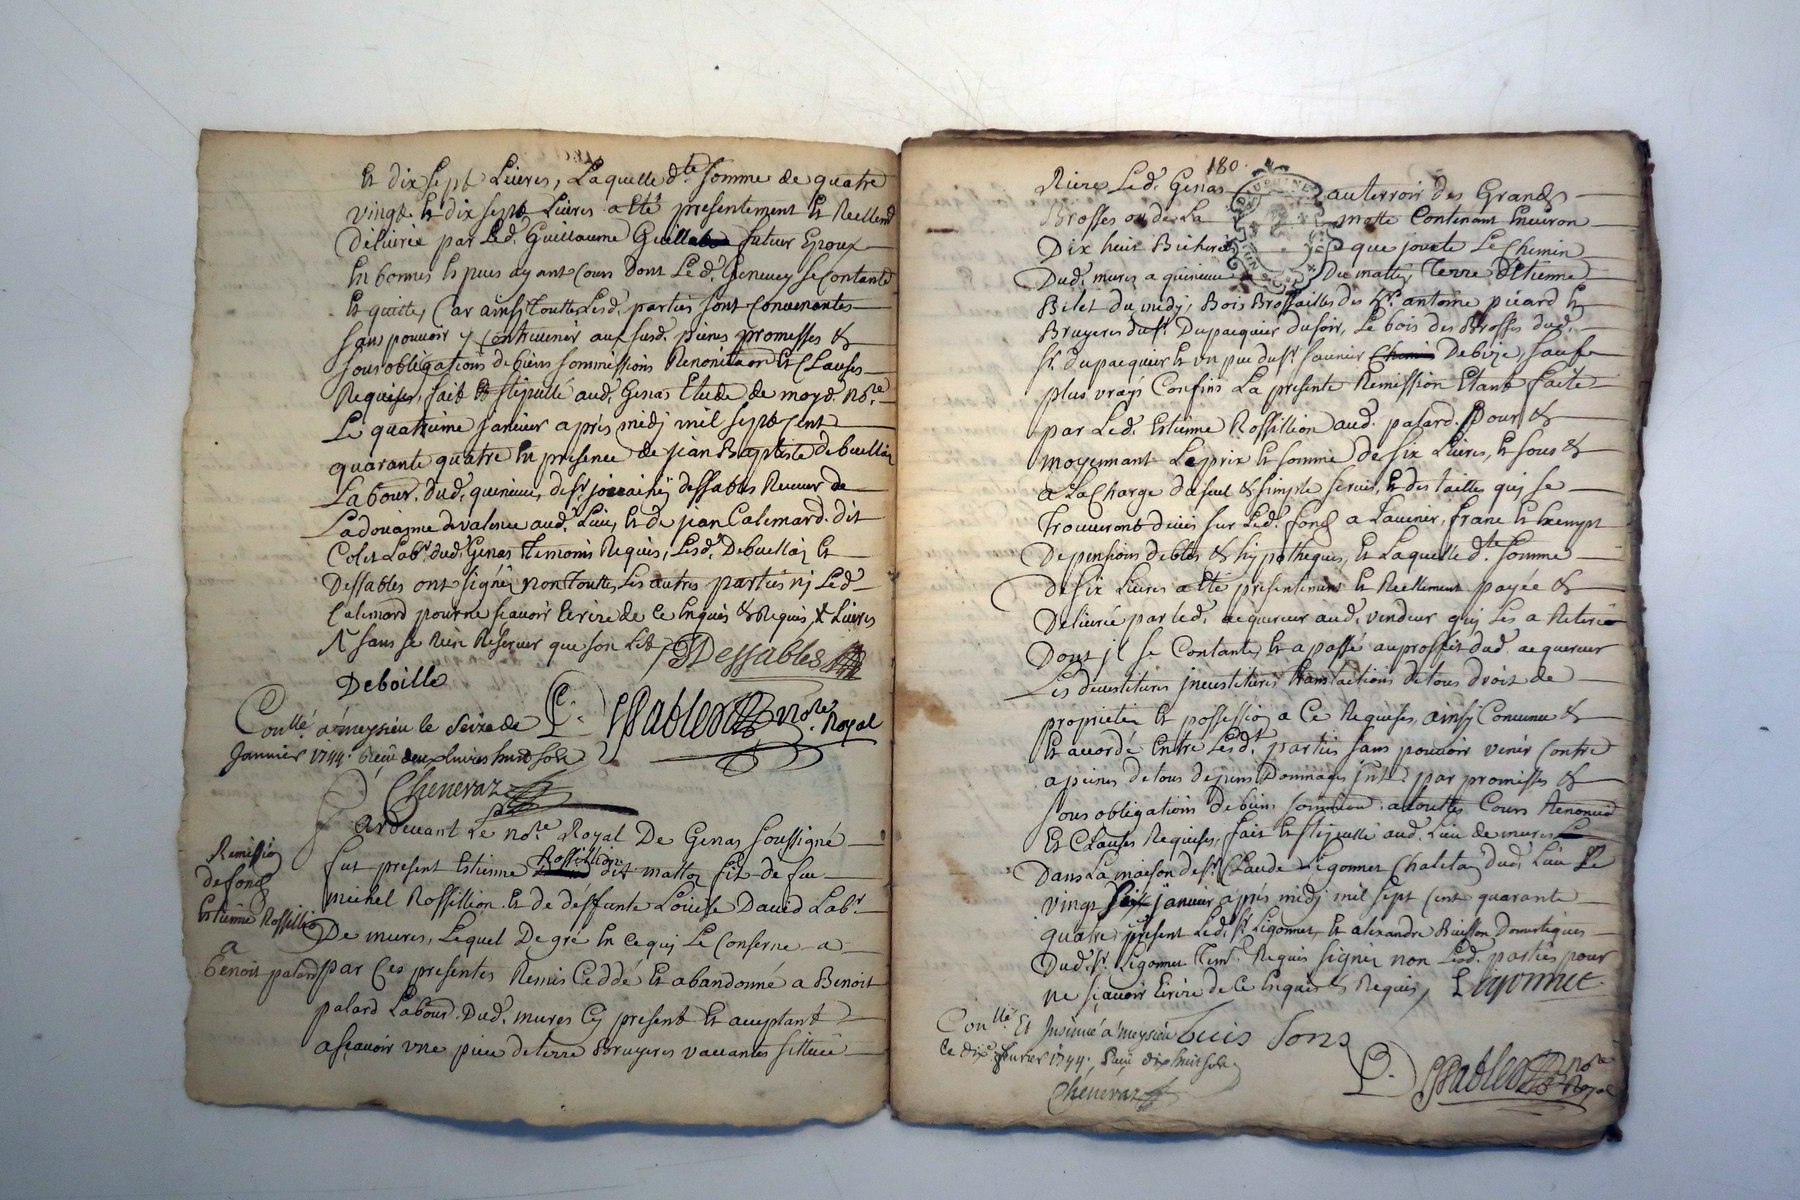 Et dix sept Livres, Laquelle d.te somme de quatre
vingt Et dix sept Livres a Eté presentement Et Reellem.t
délivrée par Led. Guillaume futur Epoux
En bonnes Es puis ayant Cours Dont Le d. se Contante
Et quitte, Car ainsi Toutte Lesd. parties sont Convenantes
sans pouvoir y Contrevenir aux susd. peines promesses &
sous obligations de biens sommissions Renonciaon Et Clauses
Requises, fait & stipullé aud. Genas Etude de moyd. No.re
Le quatrieme janvier après midj mil sept Cent
quarante quatre En presence de jean Baptiste Debuellin
Labour. dud. de s.r dessables Receveur de
Ladouanne de valence aud. Lieu, Et de jean Calemard. dit
Colet Lab.r dud. Genas Temoins Requis, Lesd. Debuellin Et
Dessables ont signé non Toutte Les autres parties nj Led.
Calemard pour ne sçavoir Ecrire de Ce Enquis & Requis, X Livres
sans se Rien Reserver que son
Dessables
Deboille
no.re Royal
Con.llé a meysieu le seize de
Janvier 1744. Reçu deux livres huit sols
Chenevaz
Pardevant Le no.re Royal De Genas soussigné
fut present Estienne Rossillion dit matton fit de feu
michel Rossillion Et de deffunte Louise David Lab.r
De mures, Lequel De gré En ce quj Le Conserne a
par Ces presentes Remis Ceddé Et abandonné a Benoit
palard Labour. Dud. mures Cy present Et acceptant
asçavoir une piece de terre Bruyeres vaccantes sittuée
Remission
de fond
Estienne Rossillion
a
Benoit palard
180.
Riere Led. Genas au terroir des Grands
Brosses ou de La motte Contenant Environ
Dix huit Bicherés que jouxte Le Chemin
Dud. mures a Du mattin, Terre d'Etienne
Bilet du midj, Bois Brossailles des H.rs antoine picard Et
Bruyeres du s.r Dupacquier du soir, Le bois des Brosses dud.
s.r dupacquier Et un peu du s.r saunier De bize, saufs
plus vrays Confins La presente Remission Etant faite
par Led. Estienne Rossillion aud. palard. pour &
moyennant Le prix Et somme de six Livres, Et sous &
a La Charge du seul & simple servis, Et des tailles quj se
Trouveront deües sur Led. fond a L'avenir, franc Et Exempt
De pensions debtes & hypotheques, Et Laquelle d.te somme
de six Livres a Eté presentement Et Reellement payée &
Délivrée par Led. acquereur aud. vendeur quj Les a Retirée
Dont jl se Contante, Et a passé au proffit dud. acquereur
Les devestitures jnvestitures translactions de tous droit de
proprieté Et possession a Ce Requises, ainsy Convenu &
Et accordé Entre Lesd. parties sans pouvoir venir Contre
a peines de tous depens Dommages jnt. par promesses &
sous obligations de biens a touttes Cours Renoncia.
Et Clauses Requises, fait Et stipullé aud. Lieu de mures
Dans La maison de s.r Claude Ligonnet Chatelain dud. Lieu Le
vingt Six janvier après midj mil sept Cent quarante
quatre, present Led. s.r Ligonnet, Et alexandre Buisson Domestiques
Dud. s.r Ligonnet Tem. Requis signez non Lesd. parties pour
ne sçavoir Ecrire de Ce Enquis & Requis, Ligonnet
Con.llé Et Insinué a meysieu
Ce dix fevrier 1744. Reçu dix huit sols
Chenevaz
no.re
Royal